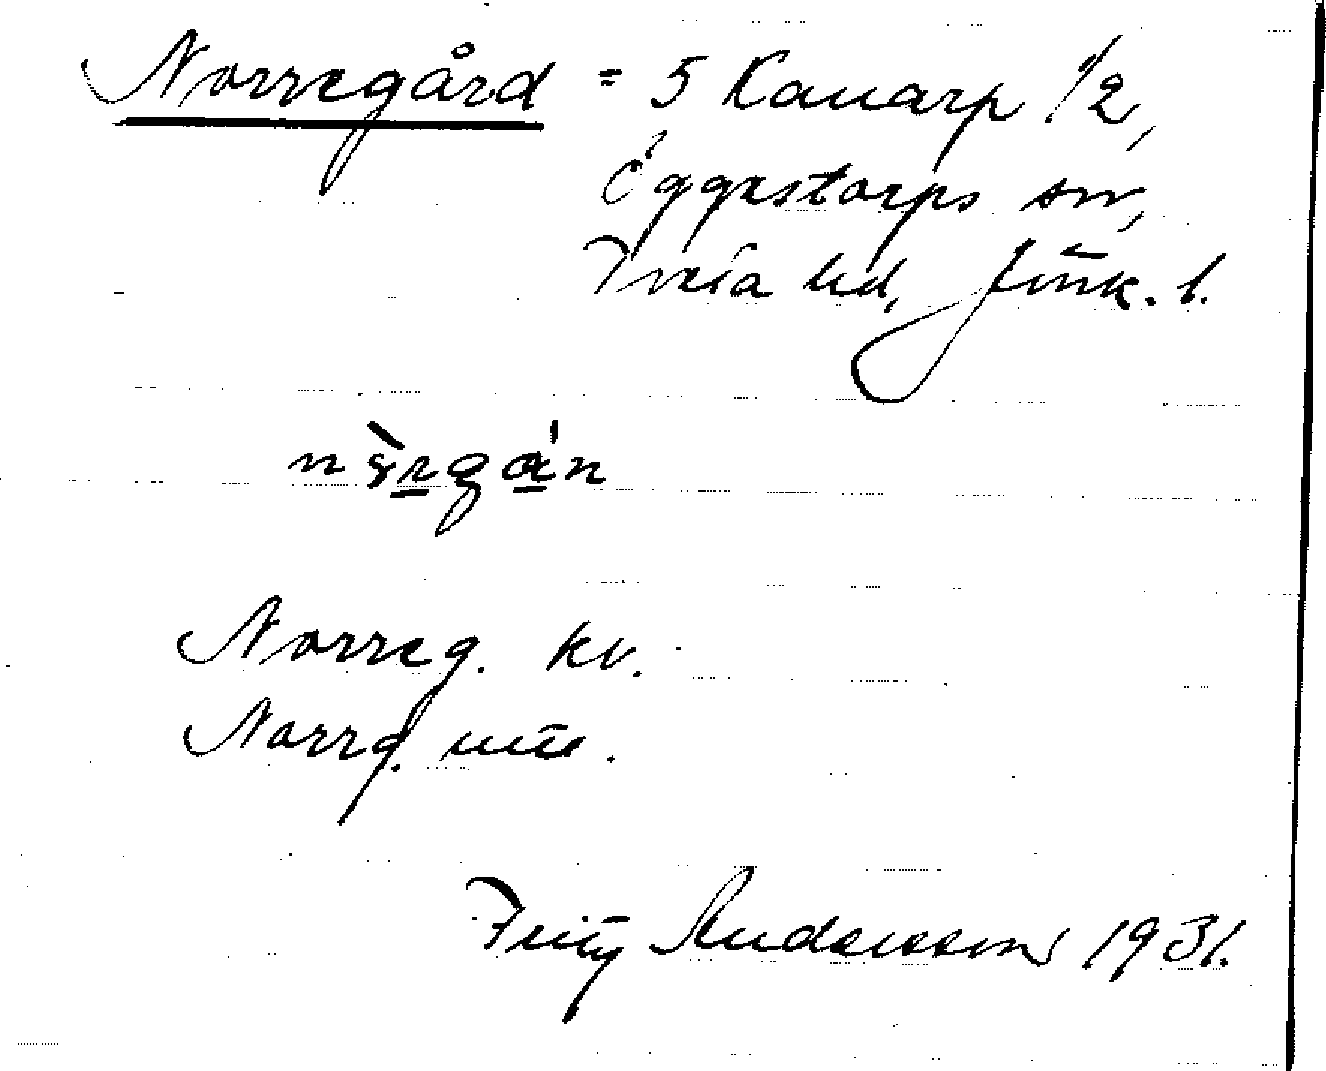 Norregård = 5 Kauarp 1/2,
Öggestorps sn,
Tveta hd, Jönk. l.
Norreg. kv.
Norrg. utt.
Fritz Andersson 1931.